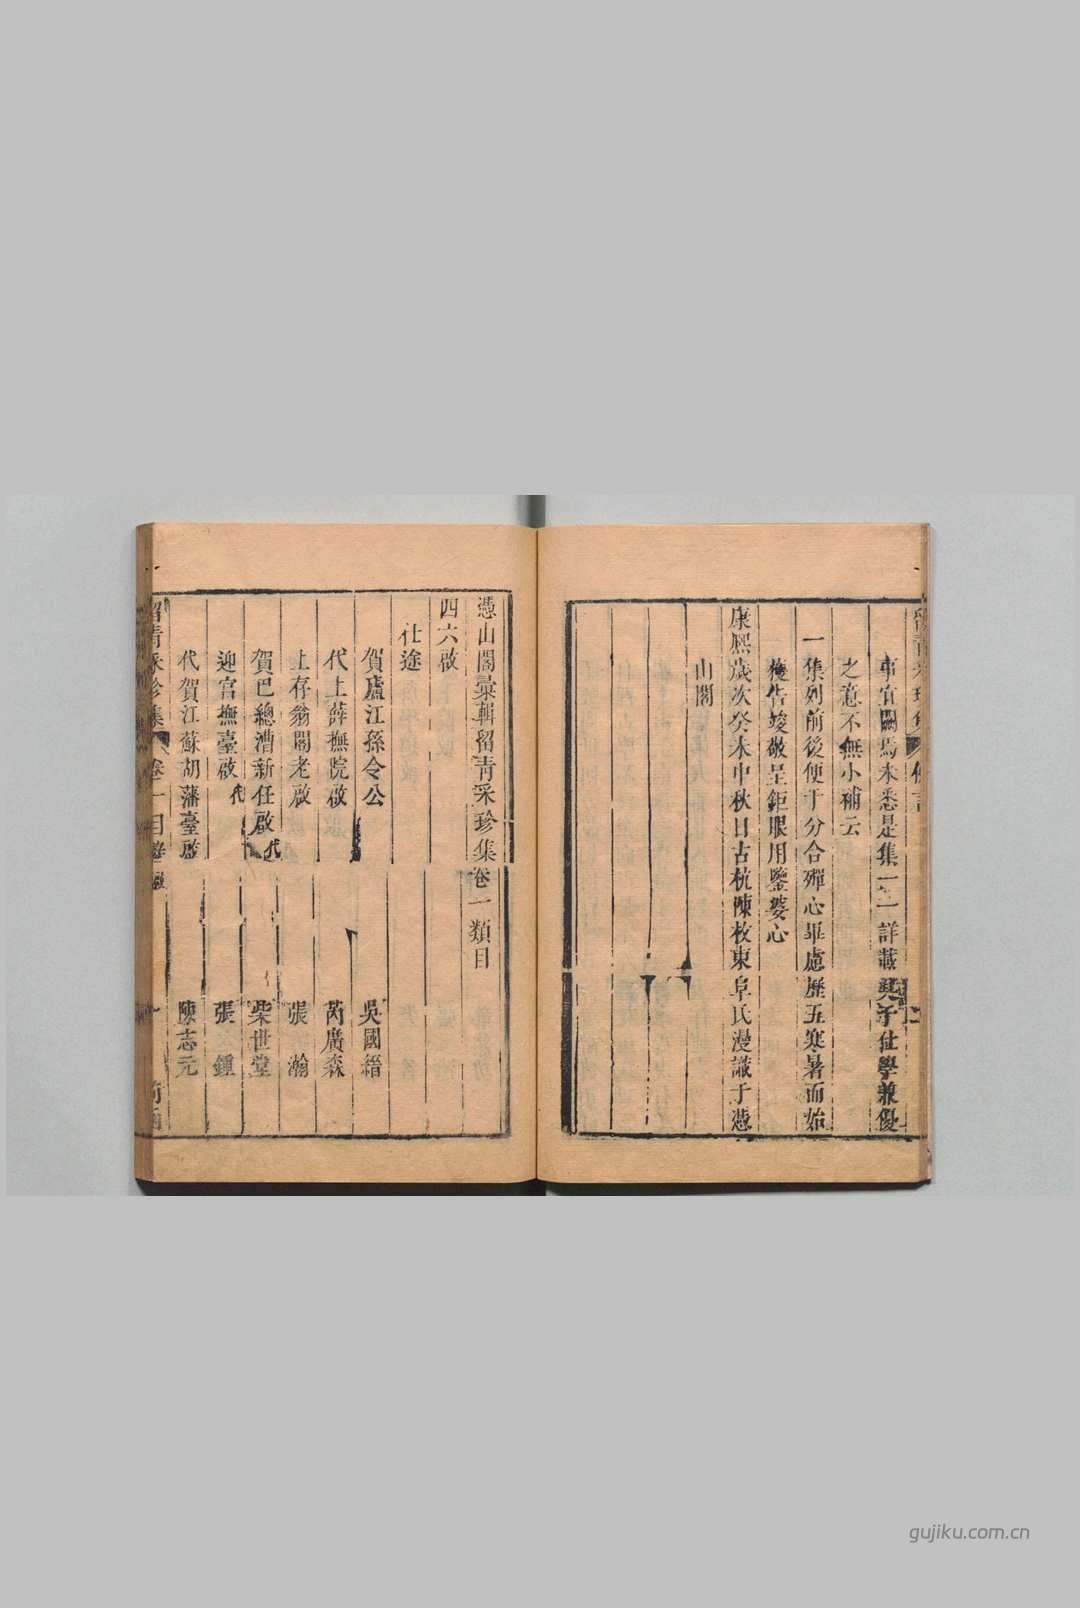 事宜闕焉未悉是集一一詳載與子仕學兼優
之意不無小補云
一集列前後便于分合殫心畢慮歷五寒暑而始
獲告竣敬呈鉅眼用鑒婆心
康熙歲次癸未中秋日古杭陳枚東阜氏漫識于憑
山閣
憑山閣彙輯留青采珍集卷一類目
四六啟
仕途
賀廬江孫令公 吳國縉
代上薛撫院啟 芮廣森
上存翁閣老啟 張瀚
賀巴總漕新任啟 代 柴世堂
迎宫撫臺啟 代 張鍾
代賀江蘇胡藩臺啟 陳志元
留青采珍集 卷一目錄
gujiku.com.cn